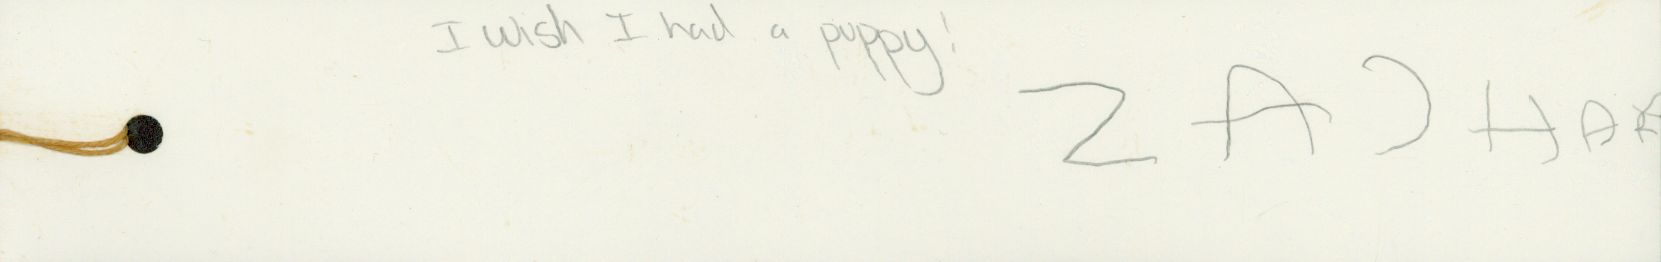 I wish I had a puppy!
ZACHAR